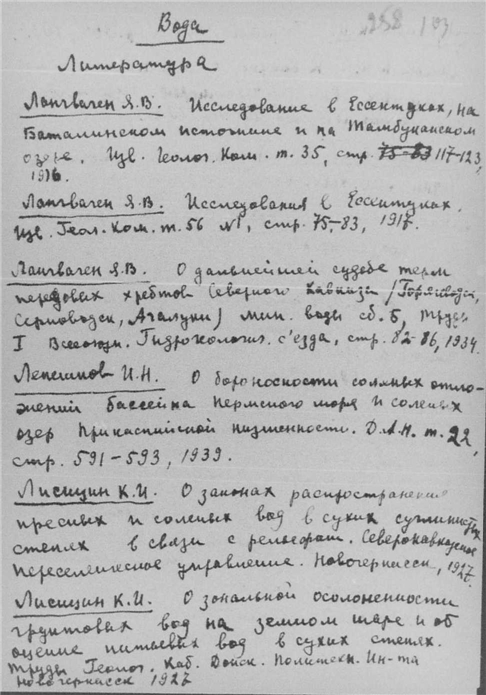 Вода
258 193
Литература
Лангваген Я.В. Исследование в Ессентуках, на
Баталинском источнике и на Тамбуканском
озере. Изв. Геолог. Ком. т. 35, стр. 75-83 117-123,
1916.
Лангваген Я.В. Исследования в Ессентуках.
Изв. Геол. Ком. т. 56 №1, стр. 75-83, 1917.
Лангваген Я.В. О дальнейшей судьбе терм
передовых хребтов Северного Кавказа /Горячеводск,
Серноводск, Ачалуки/ мин. воды сб. 6, Труды
I Всесоюзн. Гидрогеологич. с'езда, стр. 82-86, 1934.
Лепешков И.Н. О бороносности соляных отло-
жений бассейна Пермского моря и соленых
озер Прикаспийской низменности. Д.А.Н. т. 22,
стр. 591-593, 1939.
Лисицин К.И. О законах распространения
пресных и соленых вод в сухих суглинистых
степях в связи с рельефом. Северокавказское
Переселенческое управление. Новочеркасск, 1927.
Лисицин К.И. О зональной осолоненности
грунтовых вод на земном шаре и об
оценке питьевых вод в сухих степях.
Труды Геолог. Каб. Донск. Политехн. Ин-та
Новочеркасск 1927